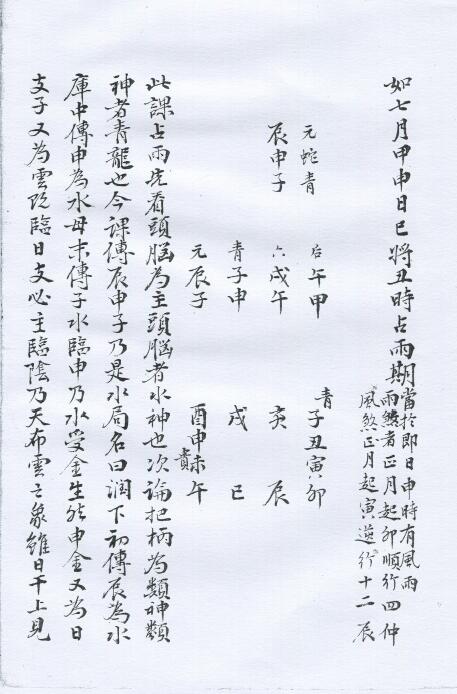 如七月甲申日巳將丑時占雨期
當於即日申時有風雨
雨煞者正月起卯順行四仲
風煞正月起寅逆行十二辰
元蛇青
辰申子
后午甲
六戌午
青子申
元辰子
青
子丑寅卯
亥 辰
戌 巳
酉申未午
貴
此課占雨先看頭腦為主頭腦者水神也次論把柄為類神類
神者青龍也今課傳辰申子乃是水局名曰润下初傳辰為水
庫中傳申為水母末傳子水臨申乃水受金生然申金又為日
支子又為雲既臨日支必主臨陰乃天布雲之象雖日干上見